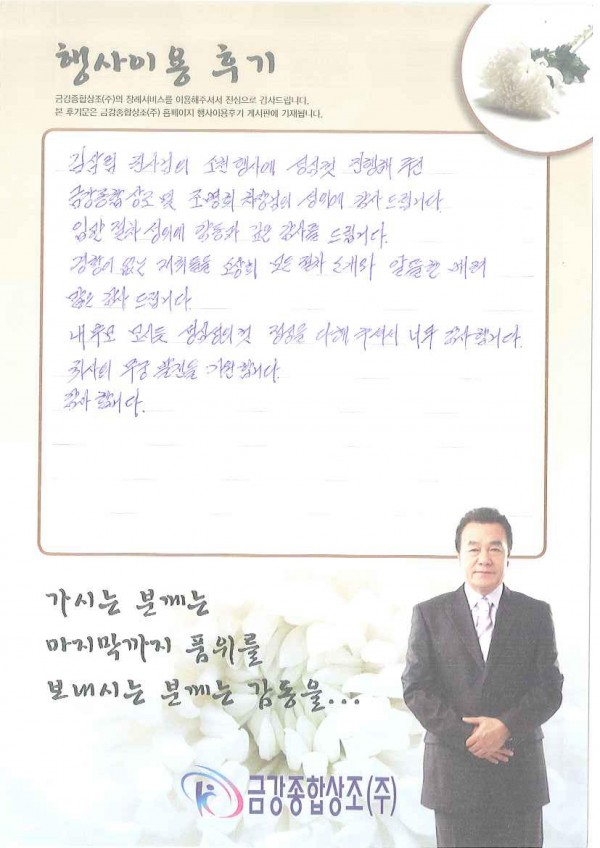 행사이용 후기
금강종합상조(주)의 장례서비스를 이용해주셔서 진심으로 감사드립니다.
본 후기문은 금강종합상조(주) 홈페이지 행사이용후기 게시판에 기재됩니다.
권사님의 행사에 성심껏 진행해 주신
금강종합상조 및 조영희 성의에 감사 드립니다.
입관 절차 성의에 감동과 깊은 감사를 드립니다.
경험이 없는 저희들을 모든 절차 소개와 알뜰한 배려
많은 감사 드립니다.
성심성의껏 정성을 다해 주셔서 너무 감사합니다.
회사의 무궁 발전을 기원합니다.
감사합니다.
가시는 분께는
마지막까지 품위를
보내시는 분께는 감동을...
금강종합상조(주)